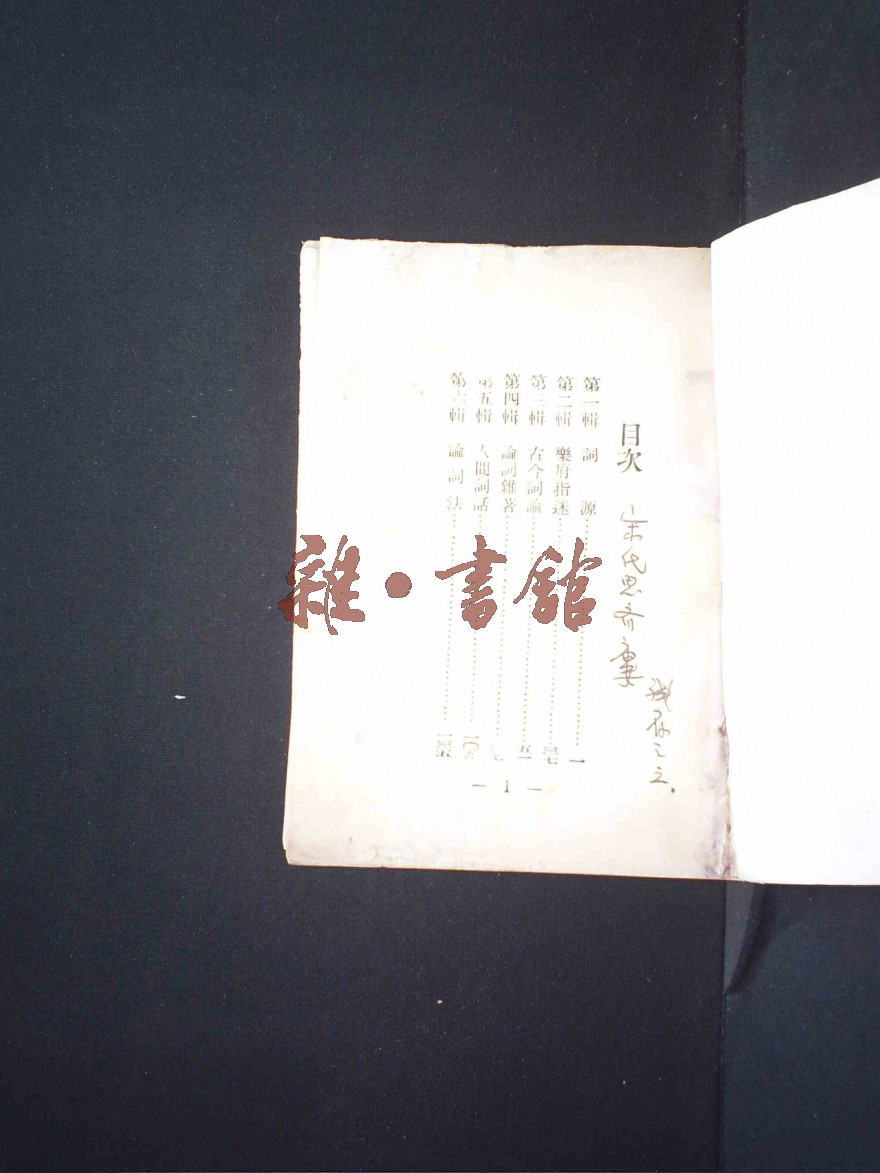 目次
宋代思
第一輯 詞源 一
第二輯 樂府指迷 三七
第三輯 古今詞論 五一
第四輯 論詞雜著 七
第五輯 人間詞話 一〇五
第六輯 論詞法 一三五
— 1 —
雜·書館